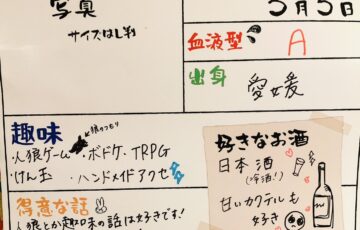 写真
サイズはし判
5月5日
血液型 A
出身 愛媛
趣味
狼のつもり
・人狼ゲーム ・ボドゲ・TRPG
・けん玉 ・ハンドメイドアクセ
好きなお酒
日本酒
(洋酒!)
甘いカクテルも
好き
得意な話
人狼とか趣味の話は好きです!